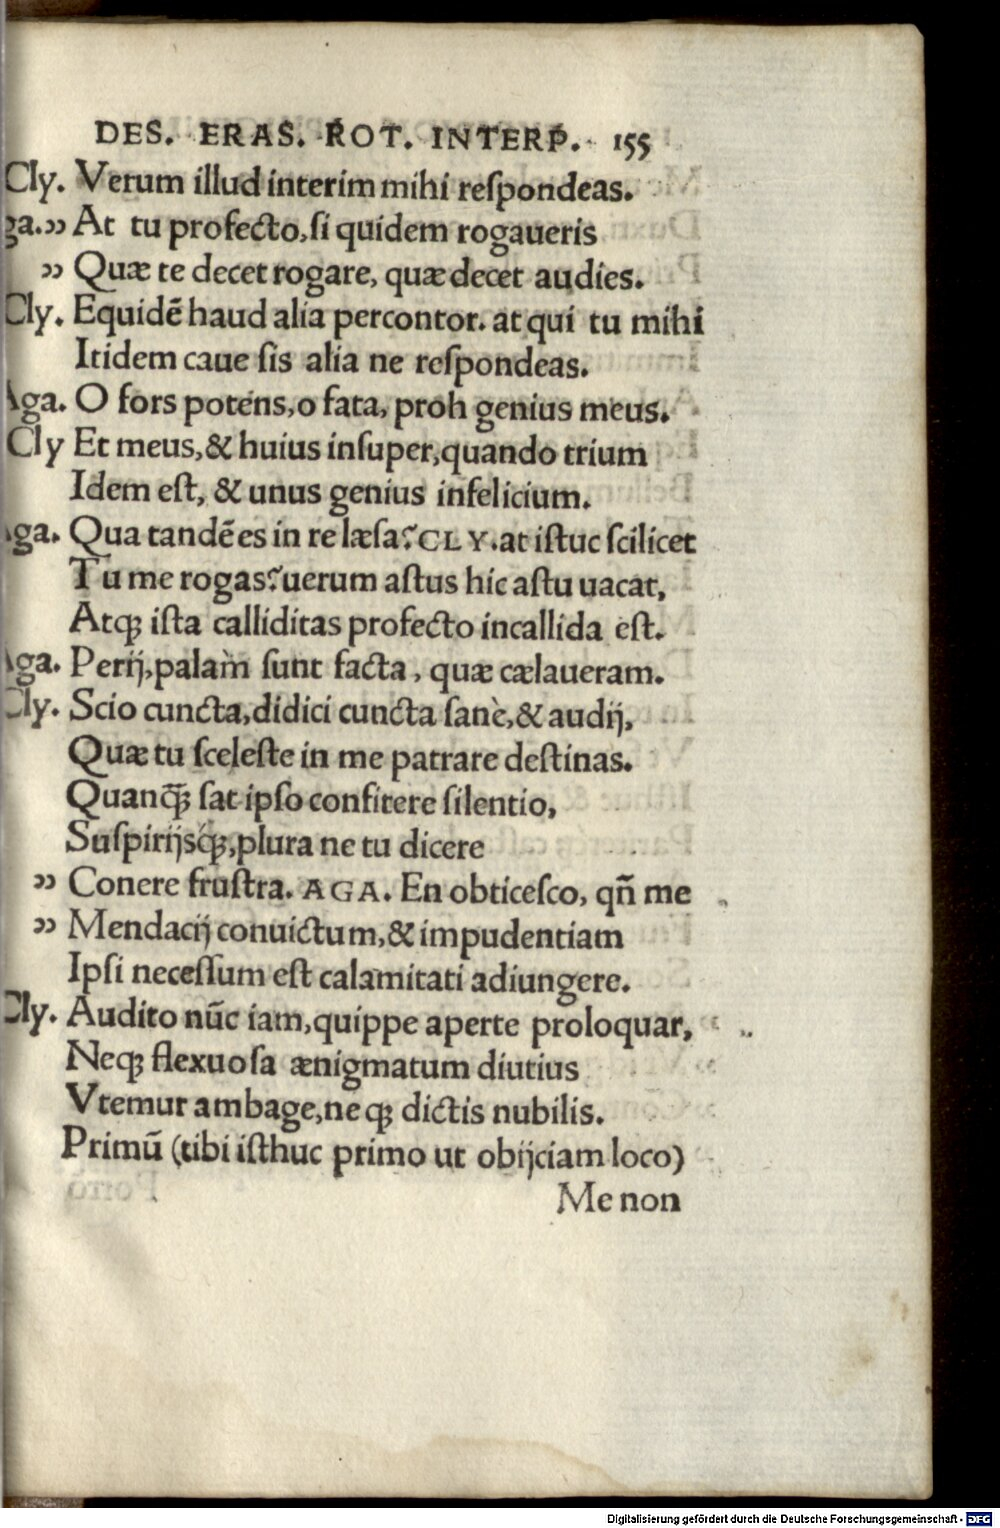 DES. ERAS. ROT. INTERP. 155
Cly. Verum illud interim mihi reſpondeas.
ga. ɔɔ At tu profecto, ſi quidem rogaueris
ɔɔ Quæ te decet rogare, quæ decet audies.
Cly. Equidẽ haud alia percontor. at qui tu mihi
Itidem caue ſis alia ne reſpondeas.
Aga. O fors potens, o fata, proh genius meus.
Cly Et meus, & huius inſuper, quando trium
Idem eſt, & unus genius infelicium.
Aga. Qua tandẽ es in re læſa? CLY. at iſtuc ſcilicet
Tu me rogas? uerum aſtus hic aſtu uacat,
Atq; iſta calliditas profecto incallida eſt.
Aga. Perij, palàm ſunt facta, quæ cælaueram.
Cly. Scio cuncta, didici cuncta ſanè, & audij,
Quæ tu ſceleſte in me patrare deſtinas.
Quanq̃; ſat ipſo confitere ſilentio,
Suſpirijsq́;, plura ne tu dicere
ɔɔ Conere fruſtra. AGA. En obticeſco, qñ me
ɔɔ Mendacij conuictum, & impudentiam
Ipſi neceſſum eſt calamitati adiungere.
Cly. Audito nũc iam, quippe aperte proloquar,
Neq; flexuoſa ænigmatum diutius
Vtemur ambage, neq; dictis nubilis.
Primũ (tibi iſthuc primo ut obijciam loco)
Me non
Digitalisierung gefördert durch die Deutsche Forschungsgemeinschaft - DFG